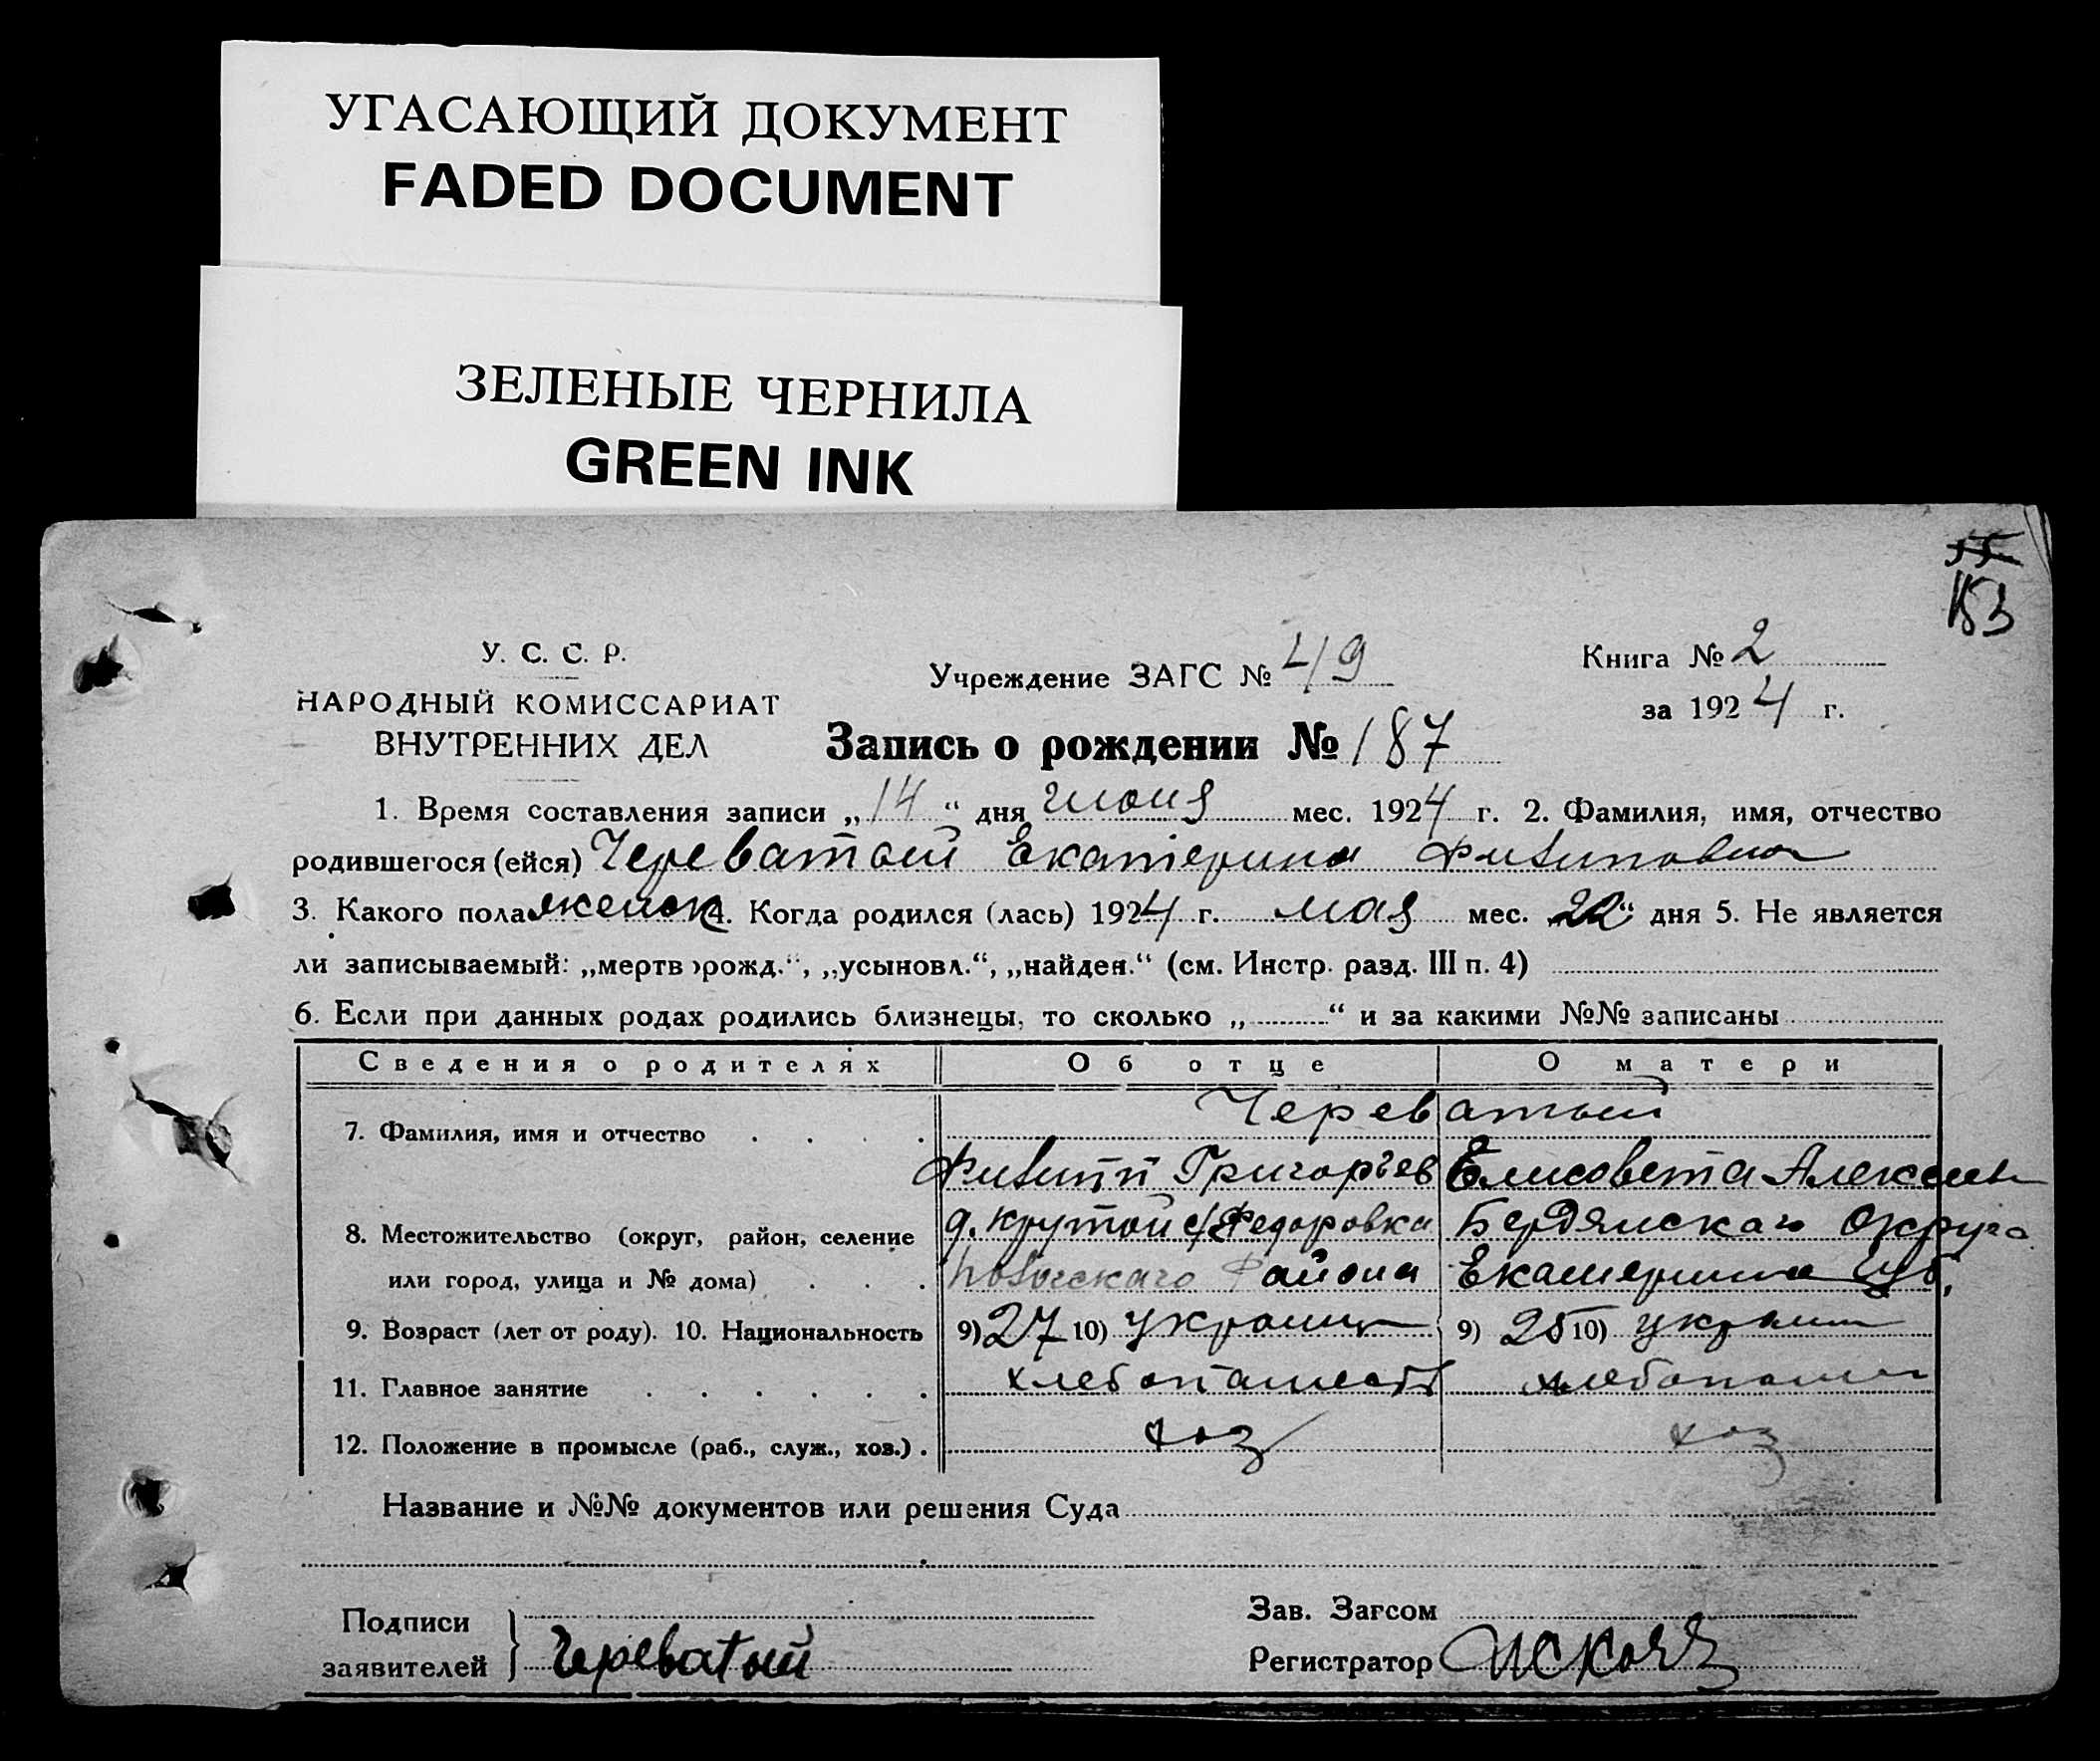 УГАСАЮЩИЙ ДОКУМЕНТ
FADED DOCUMENT
ЗЕЛЕНЫЕ ЧЕРНИЛА
GREEN INK
55
153
У. С. С. Р.
НАРОДНЫЙ КОМИССАРИАТ
ВНУТРЕННИХ ДЕЛ
Учреждение ЗАГС № 49
Книга № 2
за 1924 г.
Запись о рождении № 187
1. Время составления записи „14“ дня июня мес. 1924 г. 2. Фамилия, имя, отчество
родившегося (ейся) Череватый Екатерина Филиповна
3. Какого пола женск 4. Когда родился (лась) 1924 г. мая мес. „22“ дня 5. Не является
ли записываемый: „мертворожд.“, „усыновл.“, „найден.“ (см. Инстр. разд. III п. 4)
6. Если при данных родах родились близнецы, то сколько „ “ и за какими №№ записаны
Сведения о родителях Об отце О матери
7. Фамилия, имя и отчество Череватый
Филипп Григорьев Елисовета Алексеев
8. Местожительство (округ, район, селение д. Крутой с/Федоровка Бердянскаго Округа
или город, улица и № дома) района Екатерино Губ.
9. Возраст (лет от роду). 10. Национальность 9) 27 10) украин 9) 25 10) украин
11. Главное занятие хлебопашест хлебопаш
12. Положение в промысле (раб., служ., хоз.) хоз хоз
Название и №№ документов или решения Суда
Подписи
заявителей Череватый
Зав. Загсом
Регистратор